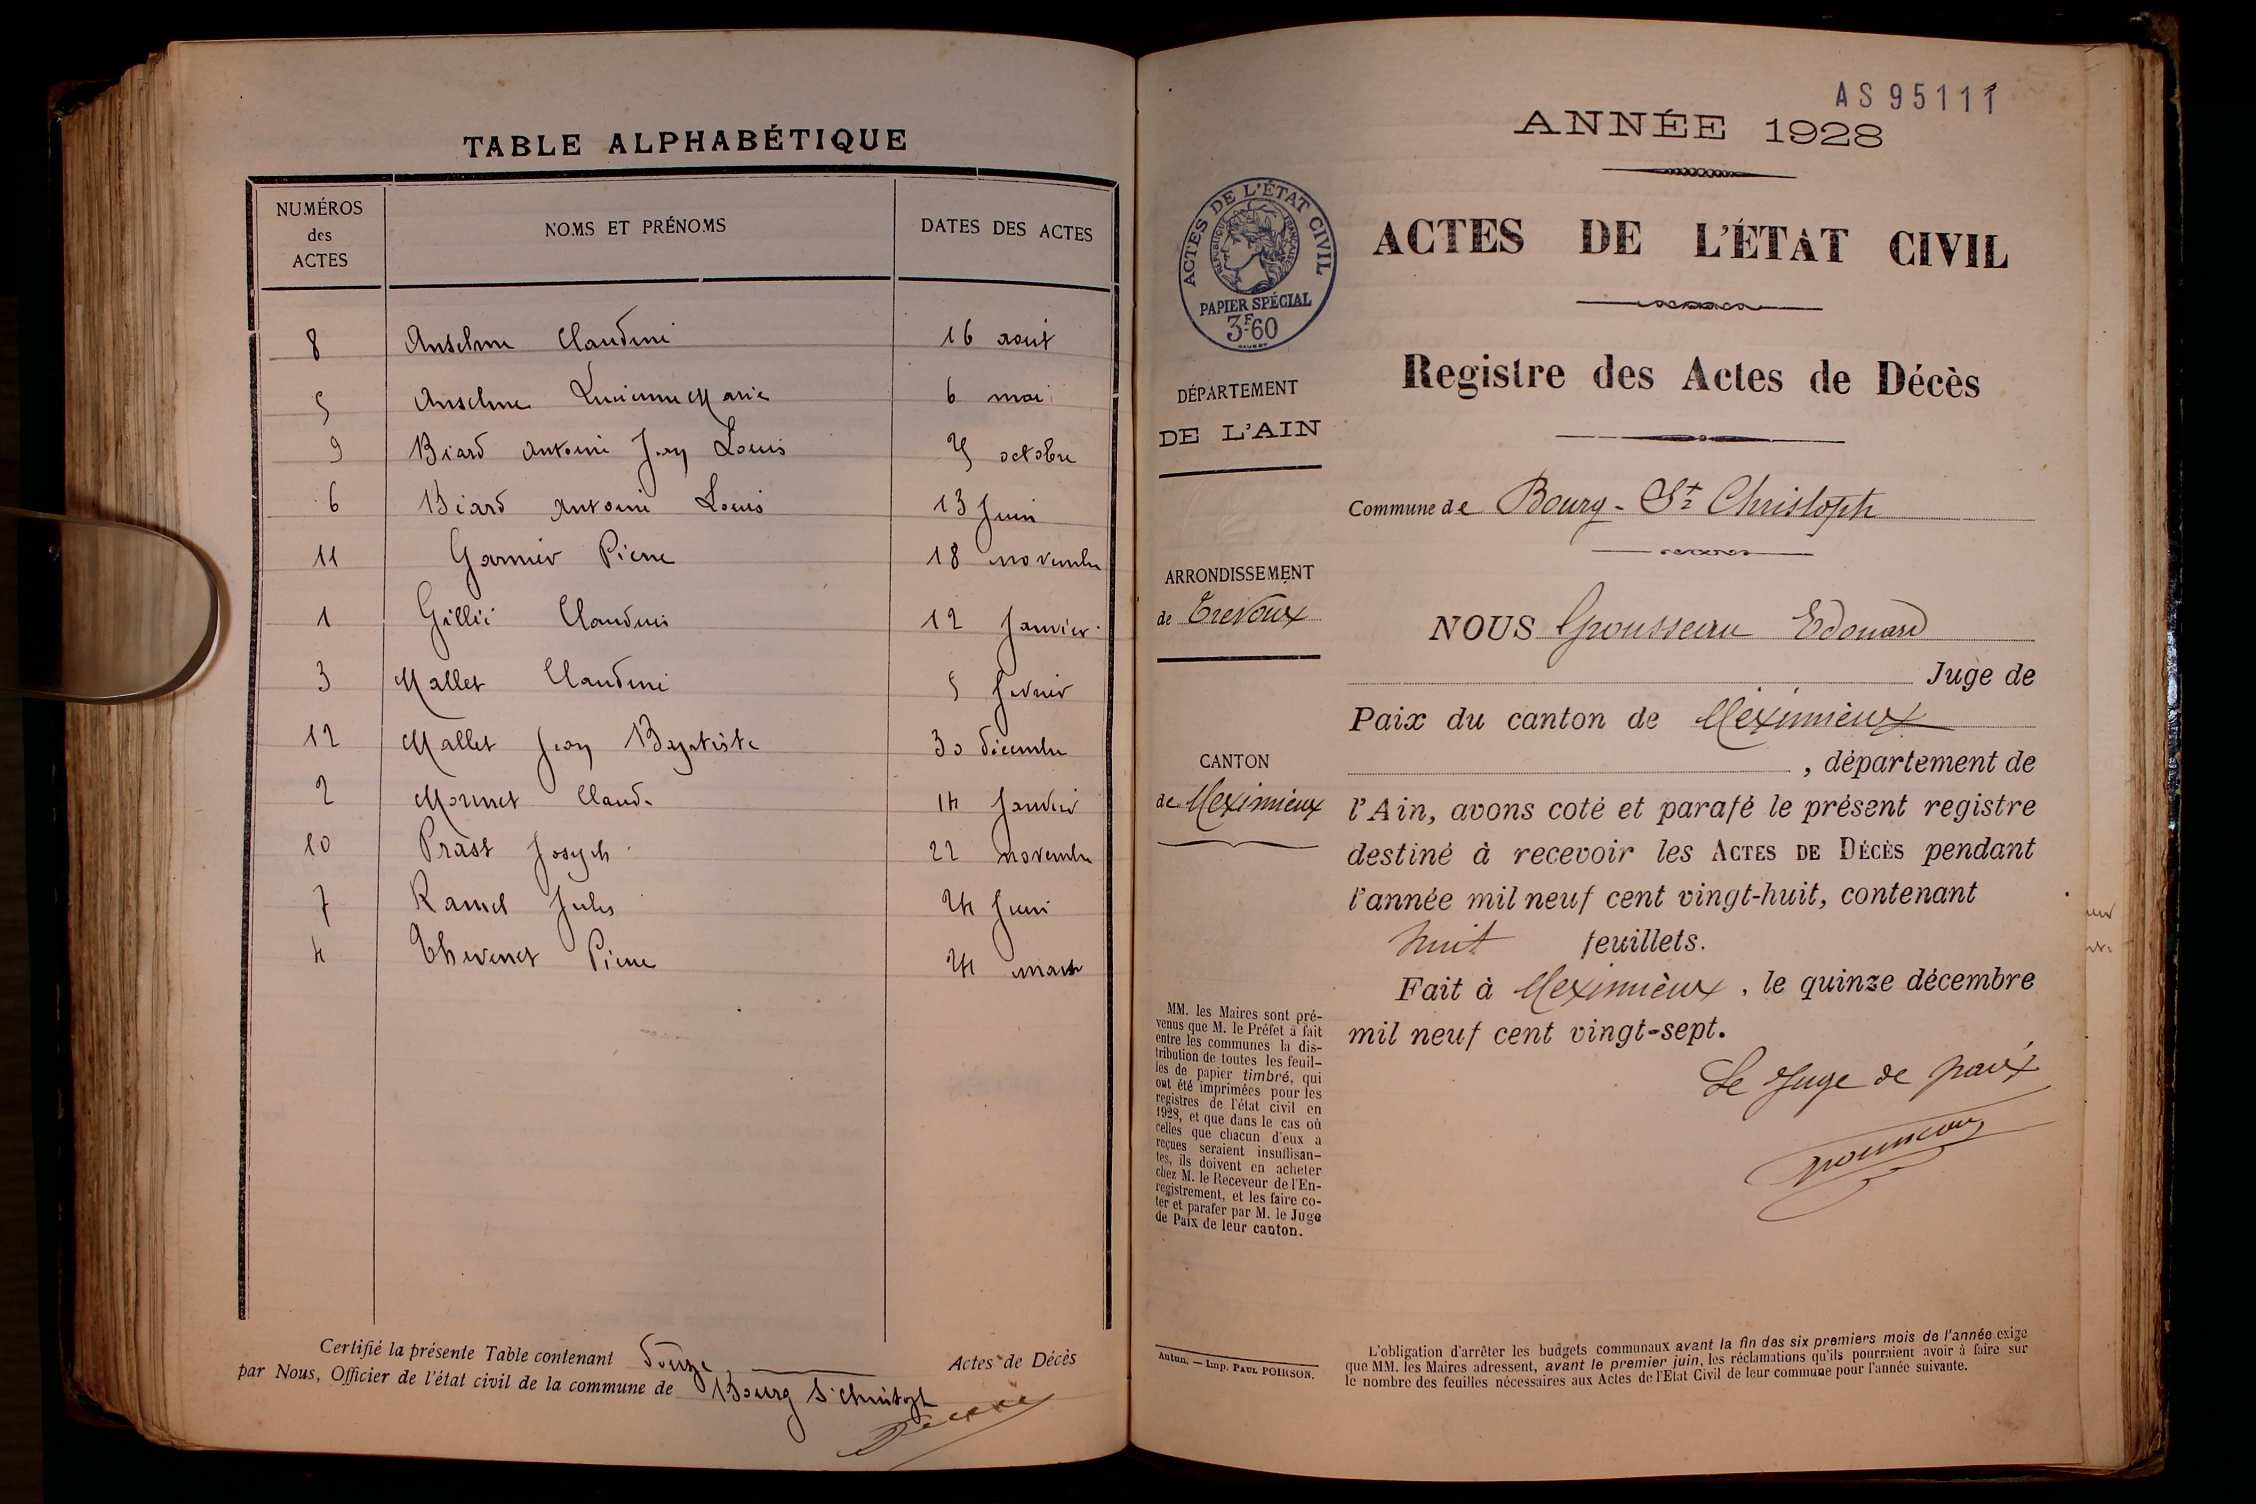 TABLE ALPHABÉTIQUE
NUMÉROS des ACTES NOMS ET PRÉNOMS DATES DES ACTES
8 Anselme Claudine 16 août
5 Anselme Lucienne Marie 6 mai
9 Biard Antoine Jean Louis 25 octobre
6 Biard Antoine Louis 13 Juin
11 Garnier Pierre 18 novembre
1 Claudine 12 Janvier
3 Mallet Claudine 5 Février
12 Mallet Jean Baptiste 30 décembre
2 Monnet Claude 14 Janvier
10 Prast Joseph 22 novembre
7 Ramel Jules 24 Juin
4 Thevenet Pierre 24 mars
Certifié la présente Table contenant douze Actes de Décès
par Nous, Officier de l'état civil de la commune de Bourg St Christoph
AS 95111
ANNÉE 1928
ACTES DE L'ÉTAT CIVIL
RÉPUBLIQUE FRANÇAISE
PAPIER SPÉCIAL
3F60
ACTES DE L'ÉTAT CIVIL
Registre des Actes de Décès
DÉPARTEMENT
DE L'AIN
Commune de Bourg-St Christoph
ARRONDISSEMENT
de Trevoux
CANTON
de Meximieux
NOUS Grousseau Edouard
Juge de
Paix du canton de Meximieux
, département de
l'Ain, avons coté et parafé le présent registre
destiné à recevoir les ACTES DE DÉCÈS pendant
l'année mil neuf cent vingt-huit, contenant
huit feuillets.
Fait à Meximieux, le quinze décembre
mil neuf cent vingt-sept.
Le Juge de paix
MM. les Maires sont pré-
venus que M. le Préfet a fait
entre les communes la dis-
tribution de toutes les feuil-
les de papier timbré, qui
ont été imprimées pour les
registres de l'état civil en
1928, et que dans le cas où
celles que chacun d'eux a
reçues seraient insuffisan-
tes, ils doivent en acheter
chez M. le Receveur de l'En-
registrement, et les faire co-
ter et parafer par M. le Juge
de Paix de leur canton.
Autun. — Imp. PAUL POIRSON.
L'obligation d'arrêter les budgets communaux avant la fin des six premiers mois de l'année exige
que MM. les Maires adressent, avant le premier juin, les réclamations qu'ils pourraient avoir à faire sur
le nombre des feuilles nécessaires aux Actes de l'Etat Civil de leur commune pour l'année suivante.